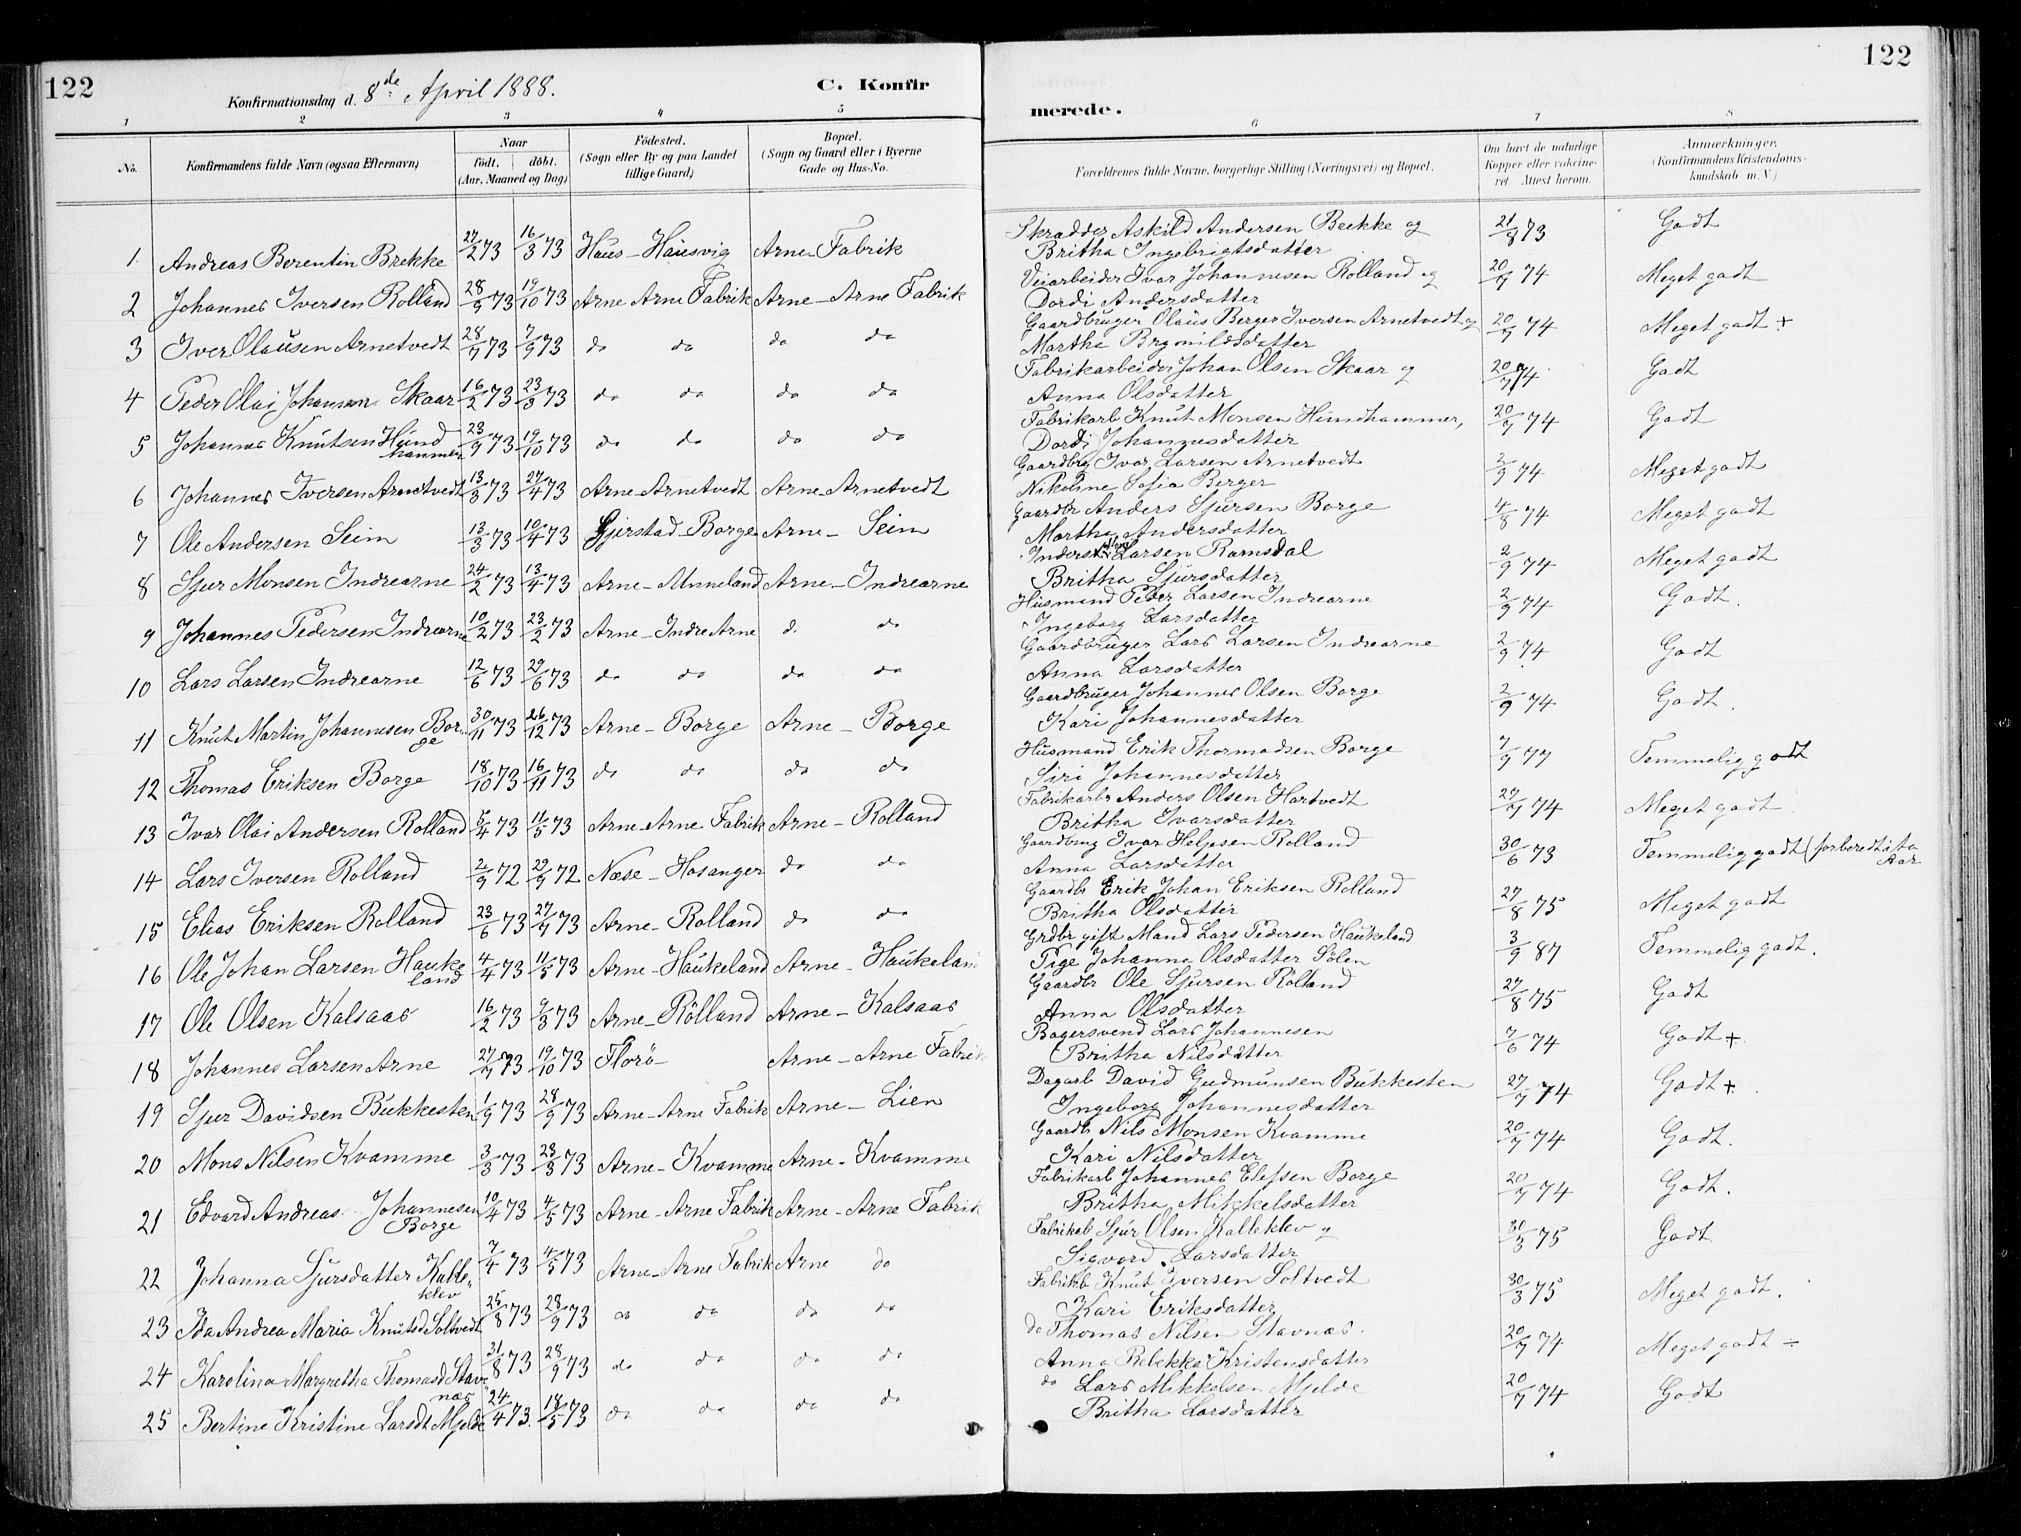 122
Konfirmationsdag d. 8de April 1888.
C. Konfir
merede.
122
1 2 3 4 5 6 7 8
No.
Konfirmandens fulde Navn (ogsaa Efternavn)
Naar
födt. döbt.
(Aar, Maaned og Dag)
Födested.
(Sogn eller By og paa Landet
tillige Gaard)
Bopæl.
(Sogn og Gaard eller i Byerne
Gade og Hus-No.
Forældrenes fulde Navne, borgerlige Stilling (Næringsvei) og Bopæl.
Om havt de naturlige
Kopper eller vakcine-
ret Attest herom.
Anmærkninger.
(Konfirmandens Kristendoms-
kundskab m.V.)
1 Andreas Berentin Brekke 27/2 73 16/3 73 Haus - Hausvig Arne - Fabrik Skrædder Askild Andersen Brekke og 21/8 73 Godt
Britha Ingebrigtsdatter
2 Johannes Iversen Rolland 28/9 73 19/10 73 Arne Arne Fabrik Arne - Arne Fabrik Veiarbeider Ivar Johannesen Rolland og 20/7 74 Meget godt
Dordi Andersdatter
3 Iver Olausen Arnetvedt 28/7 73 7/9 73 do do do do Gaardbruger Olaus Berger Iversen Arnetvedt og 20/7 74 Meget godt +
Martha Brynildsdatter
4 Peder Olai Johansen Skaar 16/2 73 23/3 73 do do do do Fabrikarbeider Johan Olsen Skaar og 20/7 74 Godt
Anna Olsdatter
5 Johannes Knutsen Hund 23/9 73 19/10 73 do do do do Fabrikarb Knut Monsen Hundhammer, 20/7 74 Godt
hammer Dordi Johannesdatter
6 Johannes Iversen Arnetvedt 13/3 73 27/4 73 Arne - Arnetvedt Arne - Arnetvedt Gaardbrg Ivar Larsen Arnetvedt 2/9 74 Meget godt
Nikoline Sofia Berger
7 Ole Andersen Seim 13/3 73 10/4 73 Gjerstad - Borge Arne - Seim Gaardbr Anders Sjursen Borge 4/8 74 Meget godt
Martha Andersdatter
8 Sjur Monsen Indrearne 24/2 73 13/4 73 Arne - Unneland Arne - Indrearne Inderst Mons Larsen Ramsdal 2/9 74 Meget godt
Britha Sjursdatter
9 Johannes Pedersen Indrearne 10/2 73 23/2 73 Arne - Indre Arne d. do Husmand Peder Larsen Indrearne 2/9 74 Godt.
Ingeborg Larsdatter
10 Lars Larsen Indrearne 12/6 73 29/6 73 do do do do Gaardbruger Lars Larsen Indrearne 2/9 74 Godt
Anna Larsdatter
11 Knut Martin Johannesen Bor- 30/11 73 26/12 73 Arne - Borge Arne - Borge Gaardbruger Johannes Olsen Borge 2/9 74 Godt.
ge Kari Johannesdatter
12 Thomas Eriksen Borge 18/10 73 16/11 73 do do do do Husmand Erik Thormodsen Borge 7/9 77 Temmelig godt
Siri Johannesdatter
13 Ivar Olai Andersen Rolland 5/4 73 11/5 73 Arne - Arne Fabrik Arne - Rolland Fabrikarbr Anders Olsen Hartvedt 27/7 74 Meget godt
Britha Ivarsdatter
14 Lars Iversen Rolland 2/9 72 29/9 72 Næse - Hosanger do do Gaardbrug Ivar Helgesen Rolland 30/6 73 Temmelig godt (forberedt i to
Anna Larsdatter Aar
15 Elias Eriksen Rolland 23/6 73 27/7 73 Arne - Rolland do do Gaardbr Erik Johan Eriksen Rolland 27/8 75 Meget godt
Britha Olsdatter
16 Ole Johan Larsen Hauke 4/4 73 11/5 73 Arne - Haukeland Arne - Haukeland Grdbr gift Mand Lars Pedersen Haukeland 3/9 87 Temmelig godt.
land Pige Johanna Olsdatter Solen
17 Ole Olsen Kalsaas 16/2 73 9/3 73 Arne - Rolland Arne - Kalsaas Gaardbr Ole Sjursen Rolland 27/8 75 Godt
Anna Olsdatter
18 Johannes Larsen Arne 27/7 73 19/10 73 Florö Arne - Arne Fabrik Bagersvend Lars Johannesen 7/6 74 Godt +
Britha Nilsdatter
19 Sjur Davidsen Bukkesten 1/9 73 28/9 73 Arne - Arne Fabrik Arne - Lien Dagarb David Gudmunsen Bukkesten 27/7 74 Godt +
Ingeborg Johannesdatter
20 Mons Nilsen Kvamme 3/3 73 23/3 73 Arne - Kvamme Arne - Kvamme Gaardbr Nils Monsen Kvamme 20/7 74 Godt.
Kari Nilsdatter
21 Edvard Andreas Johannesen 10/4 73 4/5 73 Arne - Arne Fabrik Arne - Arne Fabrik Fabrikarb Johannes Elefsen Borge 20/7 74 Godt.
Borge Britha Mikkelsdatter
22 Johanna Sjursdatter Kalle- 7/4 73 4/5 73 Arne - Arne Fabrik Arne do Fabrikab Sjur Olsen Kalleklev og 30/3 75 Godt
klev Sigvord Larsdatter
23 Ida Andrea Maria Knutsd Soltvedt 25/8 73 28/9 73 do do do do Fabrikb Knut Iversen Soltvedt 30/3 75 Meget godt.
Kari Eriksdatter
24 Karolina Margretha Thomasd Stav 31/8 73 28/9 73 do do do do do Thomas Nilsen Stavnæs. 20/7 74 Meget godt ÷
næs Anna Rebekka Kristensdatter
25 Bertine Kristine Larsdt Mjelde 24/4 73. 18/5 73 do do do do do Lars Mikkelsen Mjelde 20/7 74 Godt
Britha Larsdatter